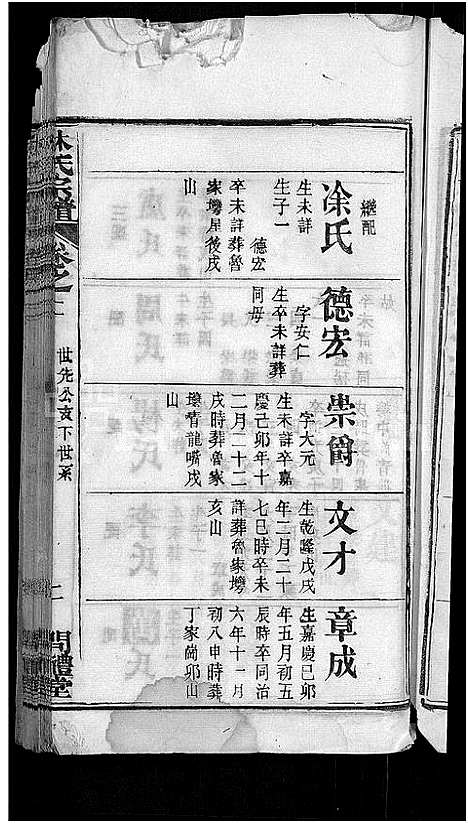 林氏宗譜
卷之
世先公支下世系
問禮堂
繼配
凃氏
生未詳
生子一
德宏
卒未詳葬魯
家塆屋後戌
山
德宏
字安仁
生卒未詳葬
同母
崇爵
字大元
生未詳卒嘉
慶己卯年十
二月二十二
戌時葬魯家
塆青龍嘴戌
山
文才
生乾隆戊戌
年三月二十
七巳時卒未
詳葬魯家塆
亥山
章成
生嘉慶己卯
年五月初五
辰時卒同治
六年十一月
初八申時葬
丁家崗卯山